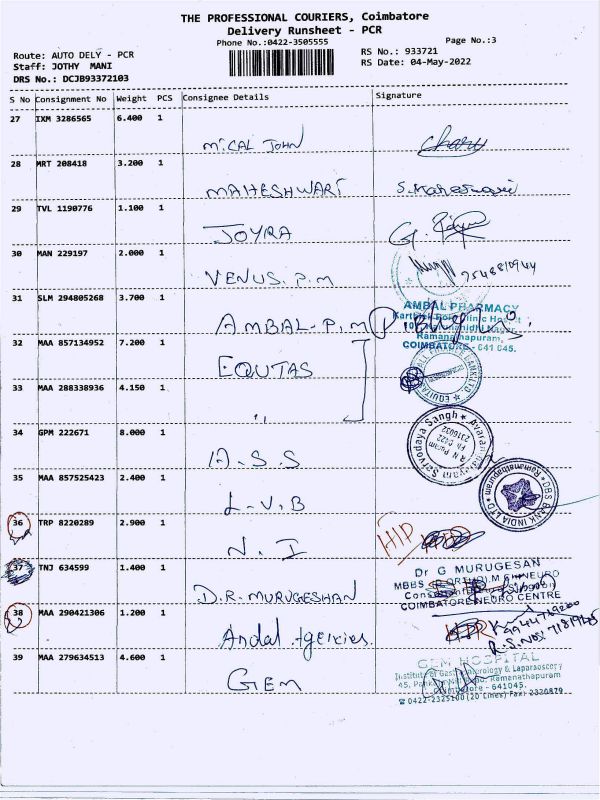 THE PROFESSIONAL COURIERS, Coimbatore
Delivery Runsheet - PCR
Phone No.:0422-3505555
Page No.:3
Route: AUTO DELY - PCR
RS No.: 933721
Staff: JOTHY MANI
RS Date: 04-May-2022
DRS No.: DCJB93372103
S No Consignment No Weight PCS Consignee Details Signature
27 IXM 3286565 6.400 1
MiCAL JOHN
28 MRT 208418 3.200 1
MAHESHWARI S.Maheswari
29 TVL 1190776 1.100 1
JOYRA
30 MAN 229197 2.000 1
VENUS. P.M
31 SLM 294805268 3.700 1
AMBAL PHARMACY
AMBAL - P.M
Ramanathapuram,
COIMBATORE - 641 045.
32 MAA 857134952 7.200 1
EQUTAS
33 MAA 288338936 4.150 1
"
34 GPM 222671 8.000 1
A.S.S
35 MAA 857525423 2.400 1
L.V.B
DBS BANK INDIA LTD
Ramanathapuram
36 TRP 8220289 2.900 1
N. I
37 TNJ 634599 1.400 1
Dr G MURUGESAN
D.R. MURUGESHAN
COIMBATORE NEURO CENTRE
38 MAA 290421306 1.200 1
Andal Agencies.
39 MAA 279634513 4.600 1
GEM HOSPITAL
GEM
Coimbatore - 641045.